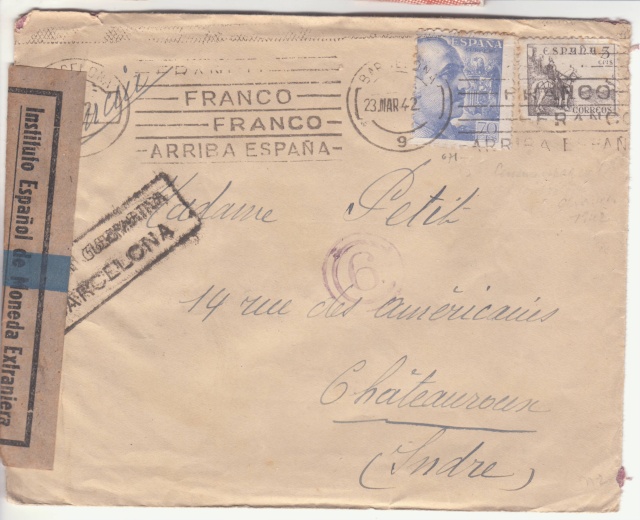 BARCELONA
23.MAR.42
9
FRANCO
FRANCO
ARRIBA ESPAÑA
ESPAÑA
70
ESPAÑA 5
CTS
CORREOS
FRANCO
FRANCO
ARRIBA ESPAÑA
Instituto Español de Moneda Extranjera
GUBERNATIVA
BARCELONA
6
Madame Petit
14 rue des américains
Châteauroux
(Indre)